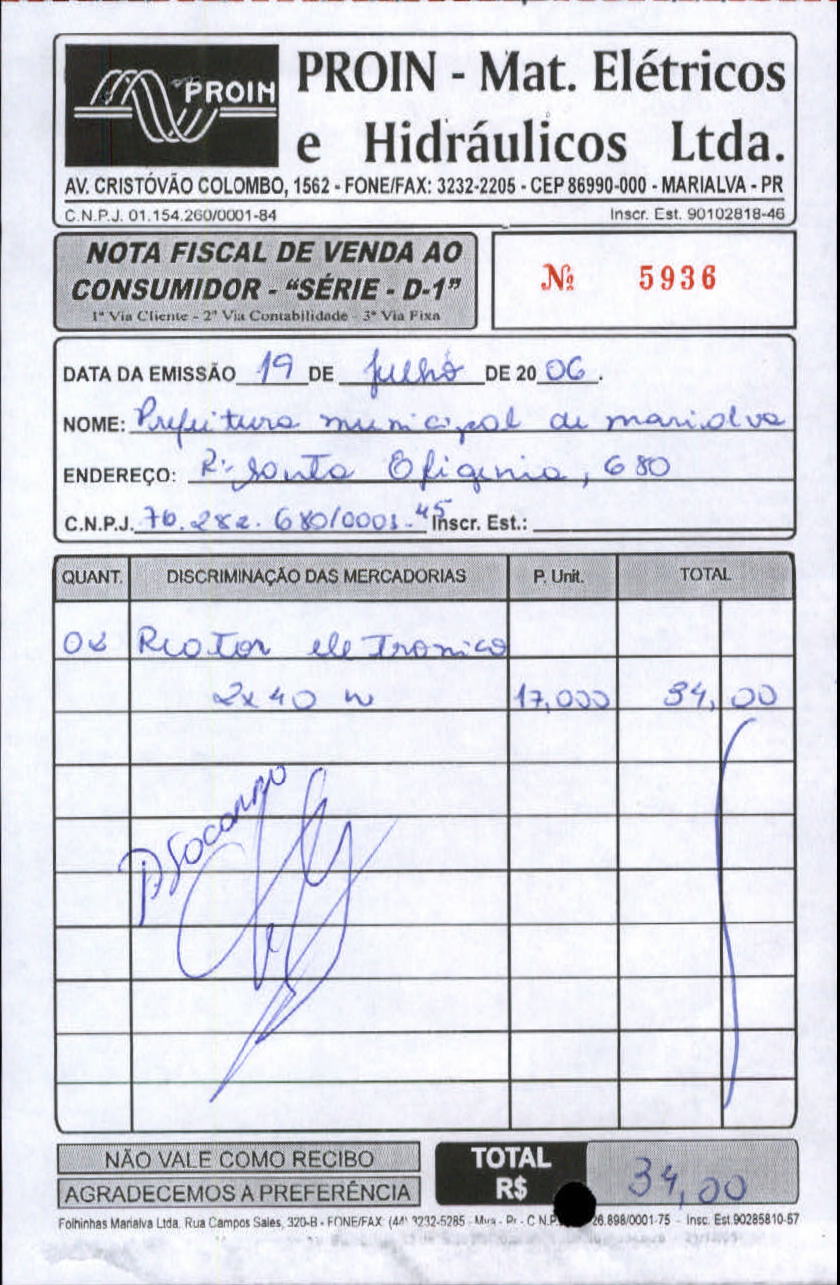 PROIN
PROIN - Mat. Elétricos
e Hidráulicos Ltda.
AV. CRISTÓVÃO COLOMBO, 1562 - FONE/FAX: 3232-2205 - CEP 86990-000 - MARIALVA - PR
C.N.P.J. 01.154.260/0001-84 Inscr. Est. 90102818-46
NOTA FISCAL DE VENDA AO
CONSUMIDOR - “SÉRIE - D-1”
1ª Via Cliente - 2ª Via Contabilidade - 3ª Via Fixa
Nº 5936
DATA DA EMISSÃO 19 DE julho DE 20 06.
NOME: Prefeitura municipal de marialva
ENDEREÇO: R: Santa Efigenia, 680
C.N.P.J. 76.282.680/0001-45 Inscr. Est.:
QUANT. DISCRIMINAÇÃO DAS MERCADORIAS P. Unit. TOTAL
02 Reator eletronico
2x40 w 17,000 34,00
NÃO VALE COMO RECIBO
AGRADECEMOS A PREFERÊNCIA
TOTAL
R$ 34,00
Folhinhas Marialva Ltda. Rua Campos Sales, 320-B - FONE/FAX: (44) 3232-5285 - Mva - Pr - C.N.P. 26.898/0001-75 - Insc. Est.90285810-57